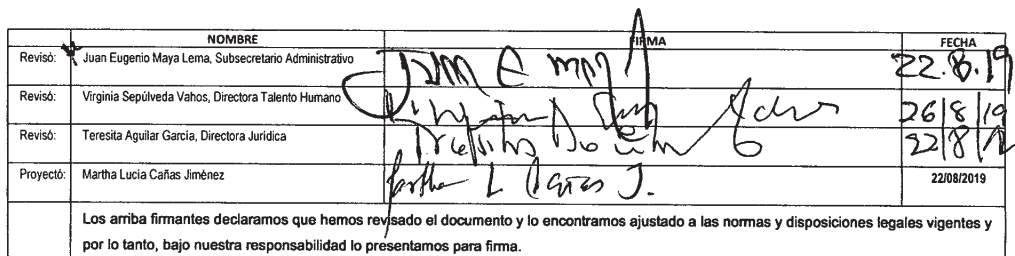 NOMBRE FIRMA FECHA
Revisó: Juan Eugenio Maya Lema, Subsecretario Administrativo 22.8.19
Revisó: Virginia Sepúlveda Vahos, Directora Talento Humano 26/8/19
Revisó: Teresita Aguilar García, Directora Jurídica 22/8/
Proyectó: Martha Lucia Cañas Jiménez Martha L Cañas J. 22/08/2019
Los arriba firmantes declaramos que hemos revisado el documento y lo encontramos ajustado a las normas y disposiciones legales vigentes y
por lo tanto, bajo nuestra responsabilidad lo presentamos para firma.